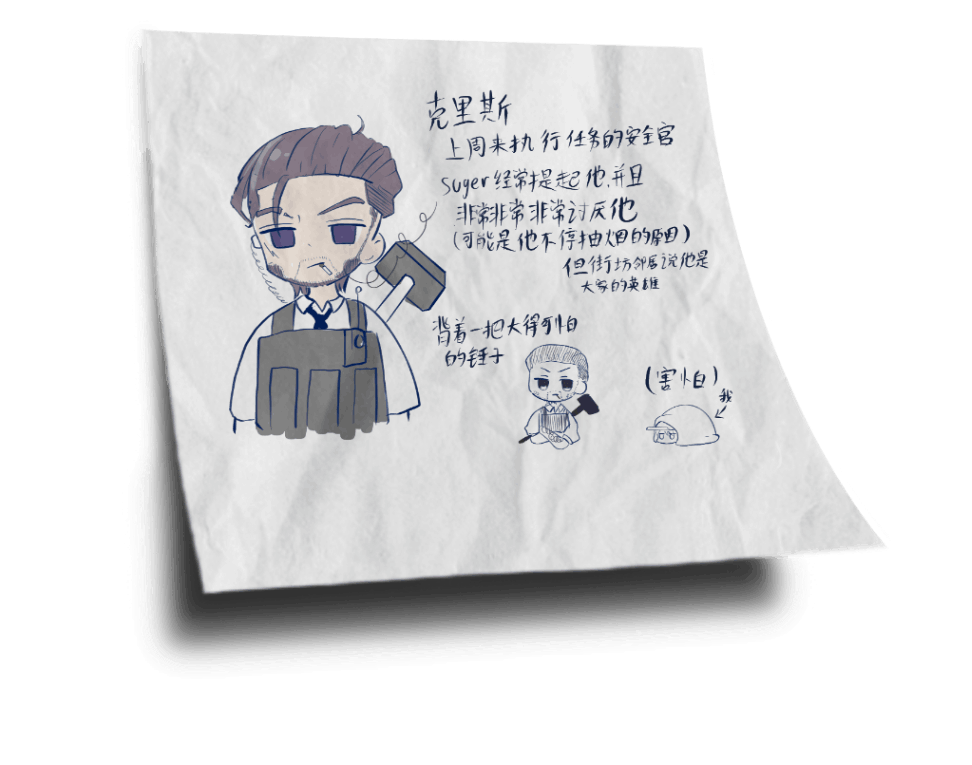 克里斯
上周来执行任务的安全官
suger经常提起他,并且
非常非常非常讨厌他
(可能是他不停抽烟的原因)
但街坊邻居说他是
大家的英雄
背着一把大得可怕
的锤子
(害怕)
我